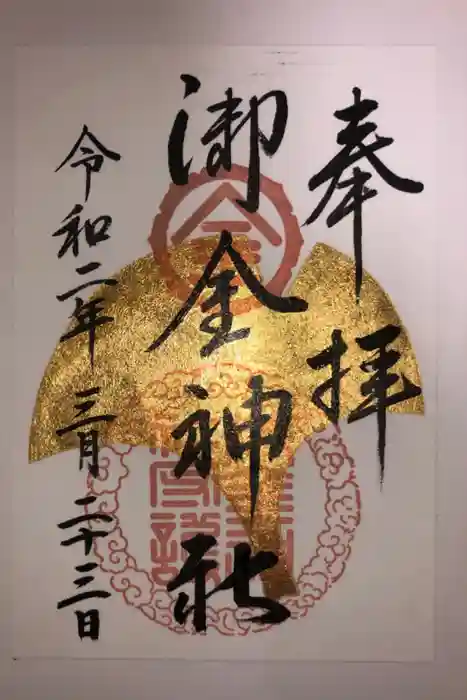 奉拝
御金神社
令和二年 三月 二十三日